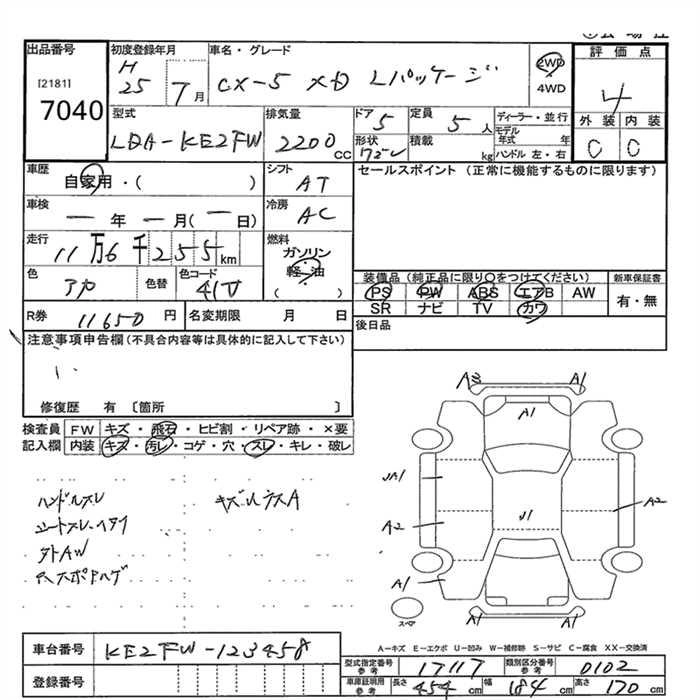 出品番号
[2181]
7040
初度登録年月
H
25 7月
車名・グレード
CX-5 XD Lパッケージ
2WD
・
4WD
評価点
4
外装 内装
C C
型式
LDA-KE2FW
排気量
2200 CC
ドア 5
形状 ワゴン
定員 5人
積載 kg
ディーラー・並行
モデル年式 年
ハンドル 左・右
車歴
自家用・( )
シフト
AT
セールスポイント (正常に機能するものに限ります)
車検
ー年 ー月(ー日)
冷房
AC
走行
11万6千255km
燃料
ガソリン
軽・油
( )
色
アカ
色替
色コード
41V
装備品(純正品に限り○をつけてください)
PS PW ABS エアB AW
SR ナビ TV カワ
新車保証書
有・無
R券 11650円
名変期限 月 日
後日品
注意事項申告欄(不具合内容等は具体的に記入して下さい)
修復歴 有 〔箇所 〕
検査員 FW キズ・飛石・ヒビ割・リペア跡・×要
記入欄 内装 キズ・汚レ・コゲ・穴・スレ・キレ・破レ
ハンドルスレ
シートスレ・ヘタリ
外AW
キズ
A
A1
A1
UA1
A2
A2
A1
A1
スペア
A-キズ E-エクボ U-凹み W-補修跡 S-サビ C-腐食 XX-交換済
車台番号 KE2FW-123458
登録番号
型式指定番号 参考 17117
類別区分番号 参考 0102
車庫証明用 参考 長さ 454cm 幅 184cm 高さ 170cm